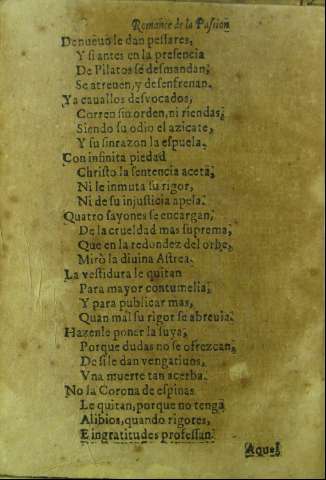 Romance de la Passion
De nueuo le dan pessares,
Y si antes en la presencia
De Pilatos se desmandan,
Se atreuen, y desenfrenan.
Ya cauallos desvocados,
Corren sin orden, ni riendas,
Siendo su odio el azicate,
Y su sinrazon la espuela.
Con infinita piedad
Christo la sentencia acetà,
Ni le inmuta su rigor,
Ni de su injusticia apela.
Quatro sayones se encargan,
De la crueldad mas suprema,
Que en la redondez del orbe,
Mirò la diuina Astrea.
La vestidura le quitan
Para mayor contumelia,
Y para publicar mas,
Quan mal su rigor se abreuia.
Hazenle poner la suya,
Porque dudas no se ofrezcan,
De si le dan vengatiuos,
Vna muerte tan acerba.
No la Corona de espinas
Le quitan, porque no tenga
Alibios, quando rigores,
E ingratitudes professan.
Aque